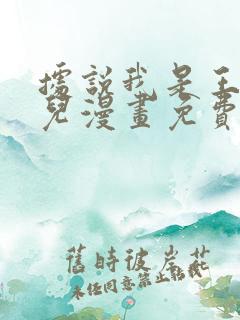 據説我是王
兒漫畫免費
舊時彼岸花
未經同意禁止轉載